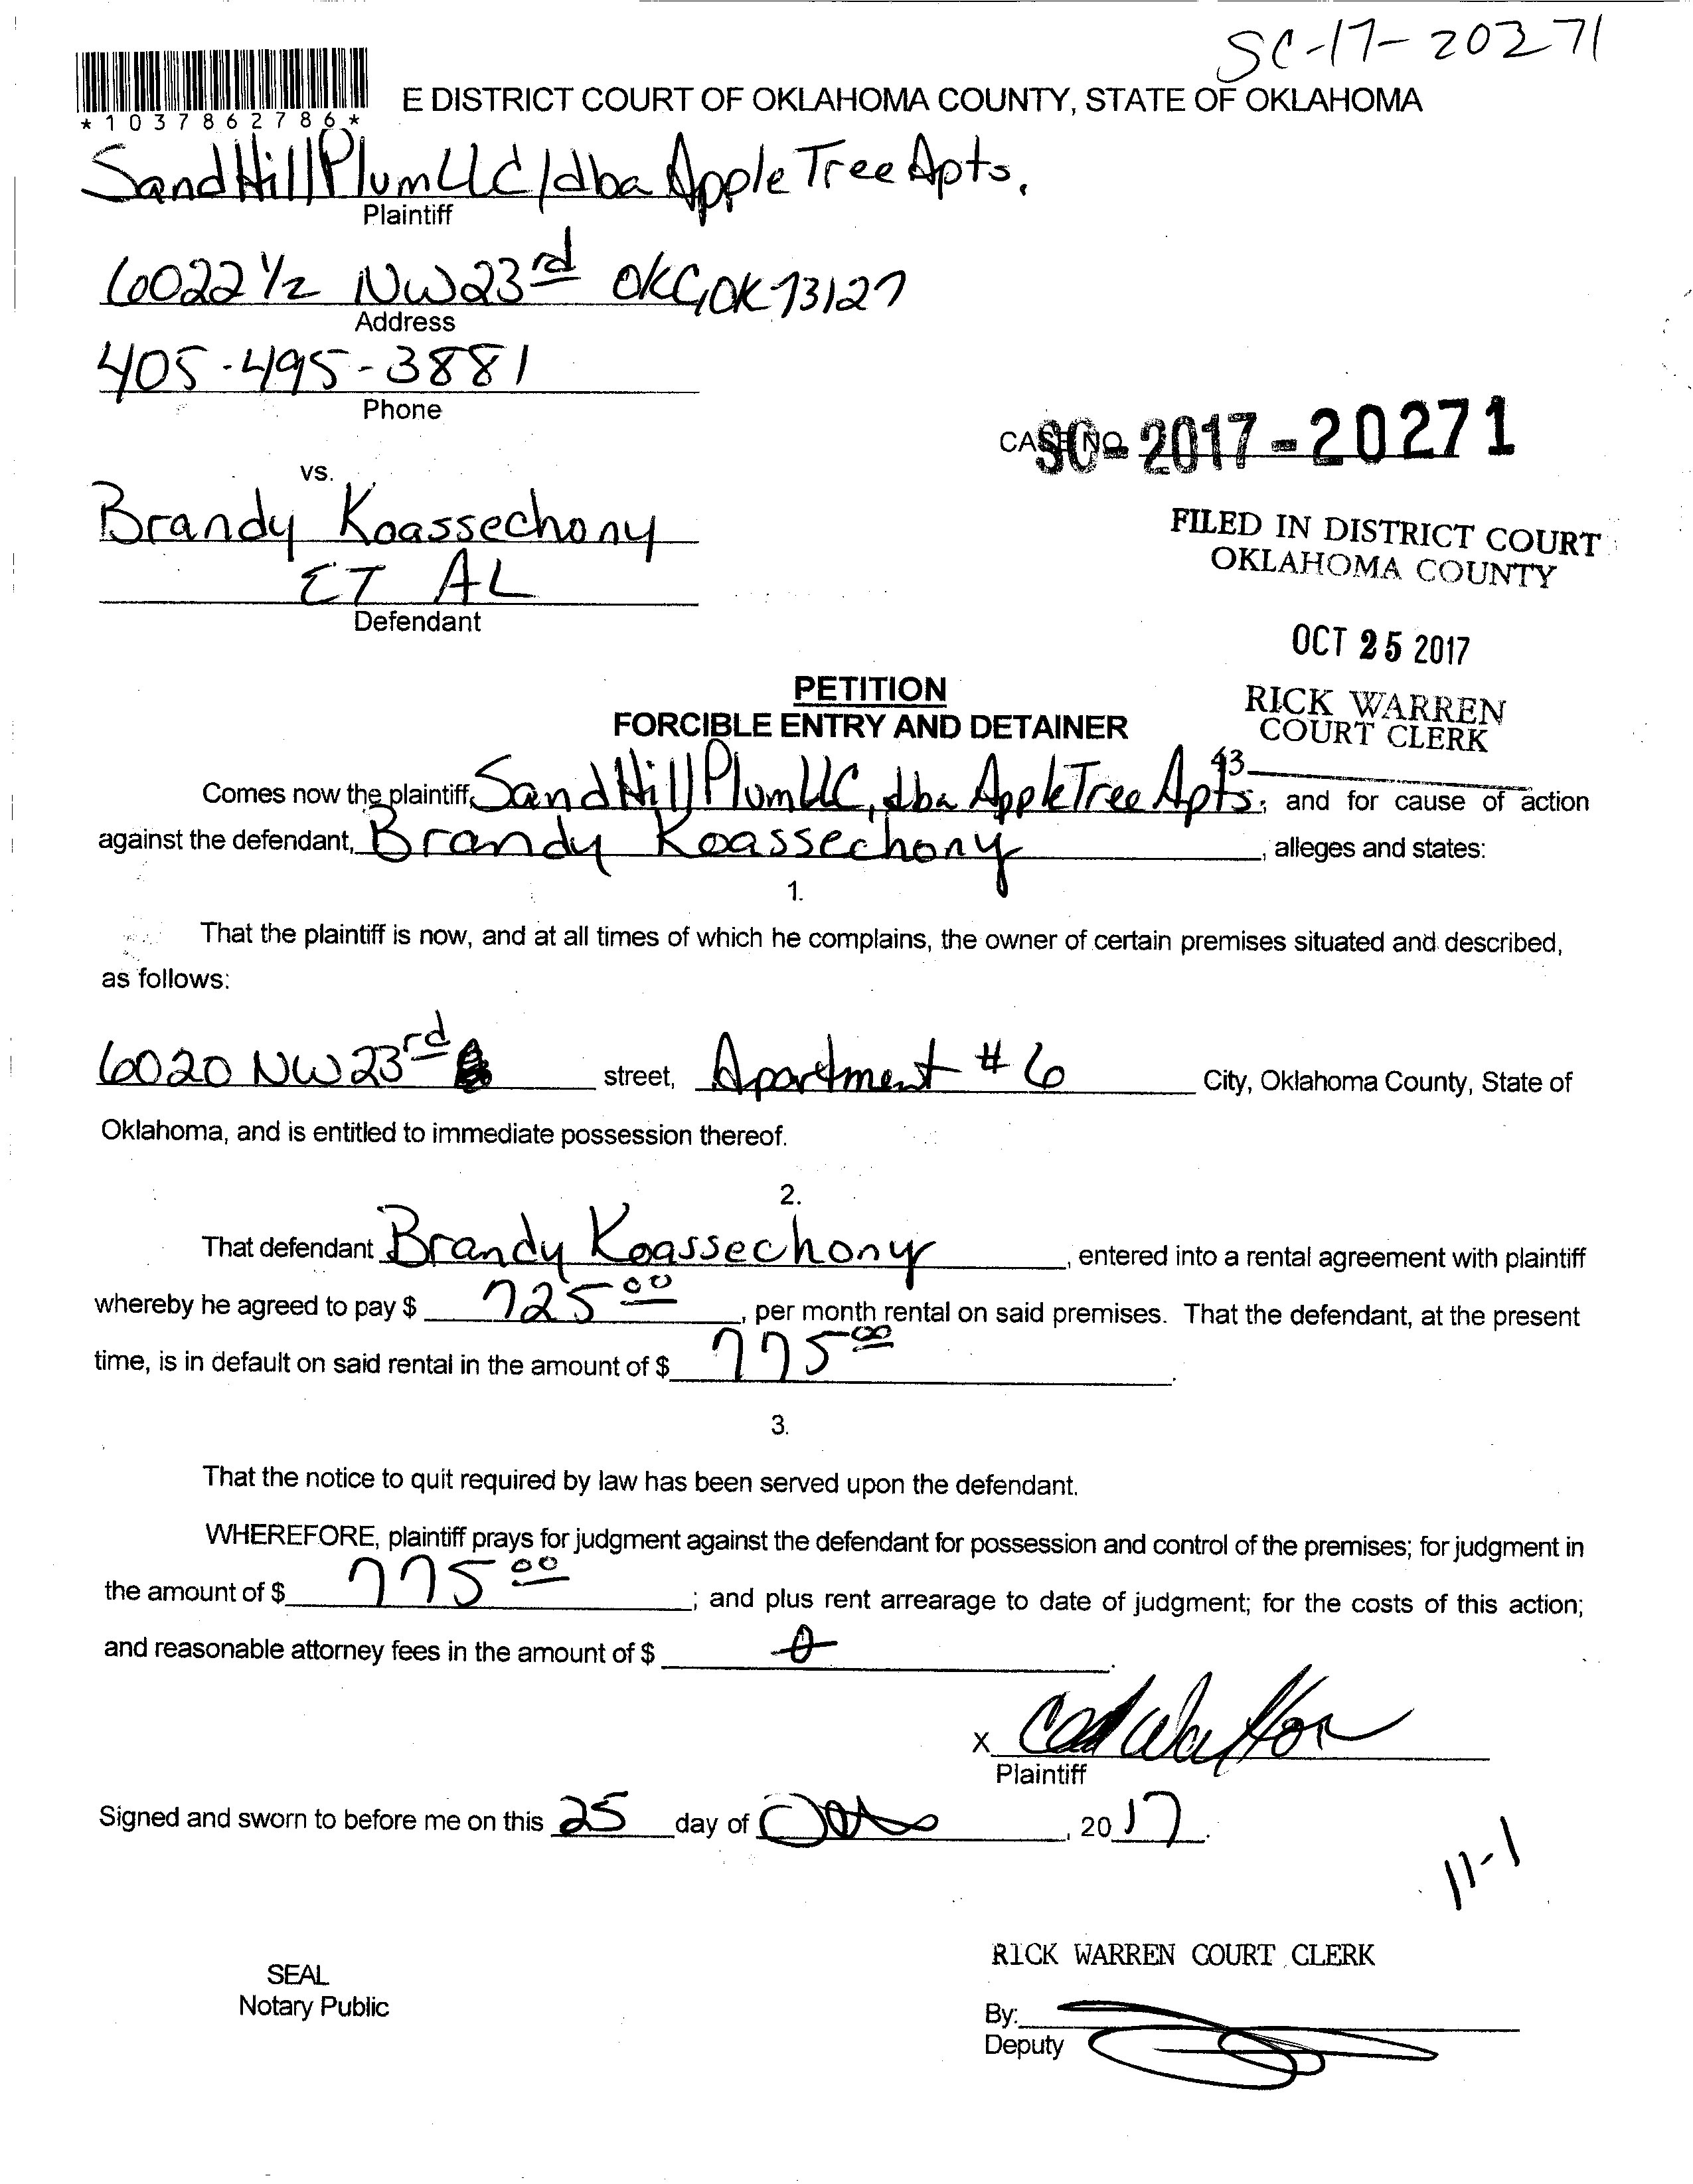 SC-17-20271
*1037862786*
E DISTRICT COURT OF OKLAHOMA COUNTY, STATE OF OKLAHOMA
Sand Hill Plum LLC/dba Apple Tree Apts.
Plaintiff
6022 1/2 NW 23rd OKC, OK 73127
Address
405-495-3881
Phone
CASE NO. SC-2017-20271
vs.
Brandy Koassechony
ET AL
Defendant
FILED IN DISTRICT COURT
OKLAHOMA COUNTY
OCT 25 2017
RICK WARREN
COURT CLERK
43
PETITION
FORCIBLE ENTRY AND DETAINER
Comes now the plaintiff, Sand Hill Plum LLC, dba Apple Tree Apts, and for cause of action
against the defendant, Brandy Koassechony, alleges and states:
1.
That the plaintiff is now, and at all times of which he complains, the owner of certain premises situated and described,
as follows:
6020 NW 23rd street, Apartment #6 City, Oklahoma County, State of
Oklahoma, and is entitled to immediate possession thereof.
2.
That defendant Brandy Koassechony, entered into a rental agreement with plaintiff
whereby he agreed to pay $ 725 00, per month rental on said premises. That the defendant, at the present
time, is in default on said rental in the amount of $ 775 00.
3.
That the notice to quit required by law has been served upon the defendant.
WHEREFORE, plaintiff prays for judgment against the defendant for possession and control of the premises; for judgment in
the amount of $ 775 00; and plus rent arrearage to date of judgment; for the costs of this action;
and reasonable attorney fees in the amount of $ 0.
X
Plaintiff
Signed and sworn to before me on this 25 day of Oct, 2017.
11-1
RICK WARREN COURT CLERK
SEAL
Notary Public
By:
Deputy